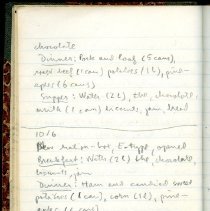 chocolate
Dinner: Pork and Loaf (5 cans),
roast beef (1 can) potatoes (1 l), pine-
apple (6 cans)
Supper: Water (2 l), tea, chocolate,
milk (1 can) biscuits, jam, bread
10/6
New ration-box, E-type, opened
Breakfast: Water (2 l) tea, chocolate,
biscuits, jam
Dinner: Ham and candied sweet
potatoes (1 can), corn (1 l), pine-